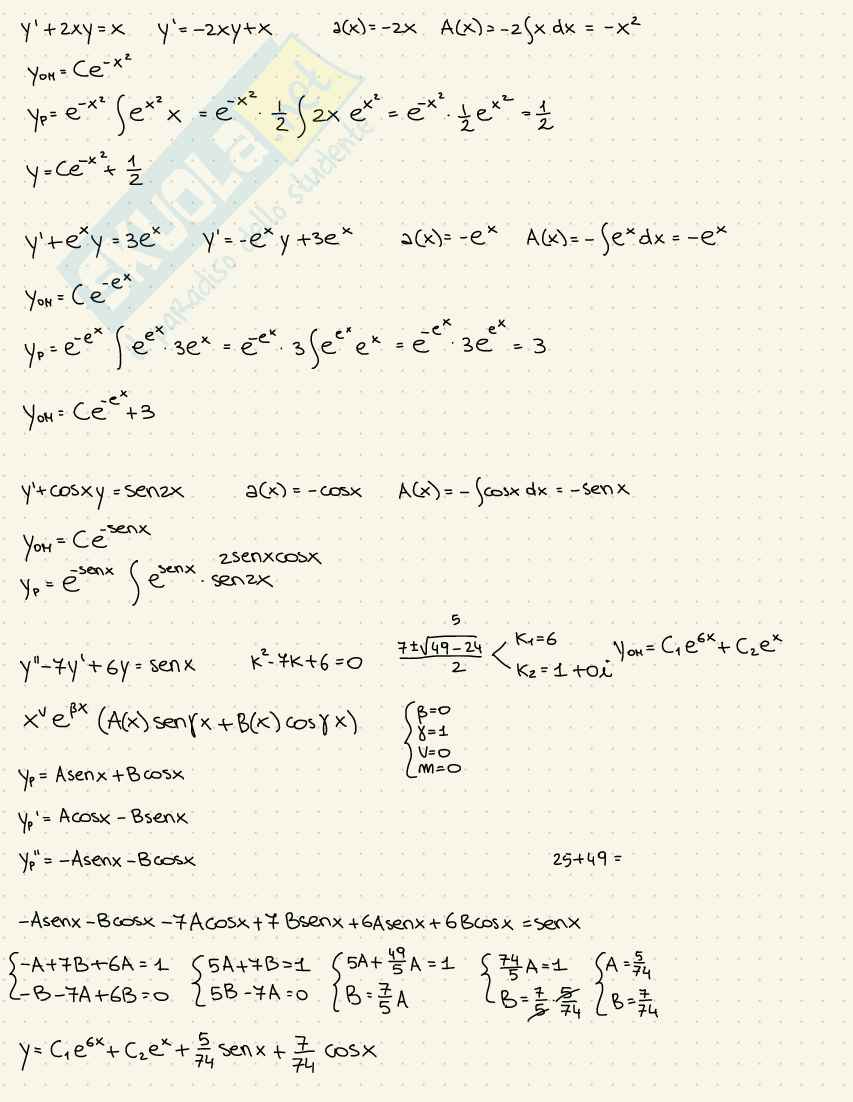 y'+2xy=x   y'=-2xy+x   a(x)=-2x   A(x)=-2∫x dx = -x²
y_OM = Ce^{-x²}
y_P = e^{-x²} ∫e^{x²} x = e^{-x²} · 1/2 ∫2x e^{x²} = e^{-x²} · 1/2 e^{x²} = 1/2
y = Ce^{-x²} + 1/2
SKUOLA.net
il paradiso dello studente
y'+e^x y = 3e^x   y'=-e^x y+3e^x   a(x)=-e^x   A(x)=-∫e^x dx = -e^x
y_OM = Ce^{-e^x}
y_P = e^{-e^x} ∫e^{e^x} · 3e^x = e^{-e^x} · 3∫e^{e^x} e^x = e^{-e^x} · 3e^{e^x} = 3
y_OM = Ce^{-e^x}+3
y'+cosxy = sen2x   a(x) = -cosx   A(x) = -∫cosx dx = -senx
y_OM = Ce^{-senx}
2senxcosx
y_P = e^{-senx} ∫ e^{senx} · sen2x
5
y''-7y'+6y = senx   k²-7k+6=0   (7±√(49-24))/2   K₁=6   K₂=1+0i   y_OM = C₁e^{6x}+C₂e^x
x^ν e^{βx} (A(x) senγx + B(x) cosγx)   { β=0
γ=1
ν=0
m=0
y_P = Asenx+Bcosx
y_P' = Acosx-Bsenx
y_P'' = -Asenx-Bcosx   25+49 =
-Asenx-Bcosx-7Acosx+7Bsenx+6Asenx+6Bcosx=senx
{ -A+7B+6A=1   { 5A+7B=1   { 5A+49/5 A=1   { 74/5 A=1   { A=5/74
-B-7A+6B=0   5B-7A=0   B=7/5 A   B=7/5 · 5/74   B=7/74
y = C₁e^{6x}+C₂e^x+5/74 senx+7/74 cosx